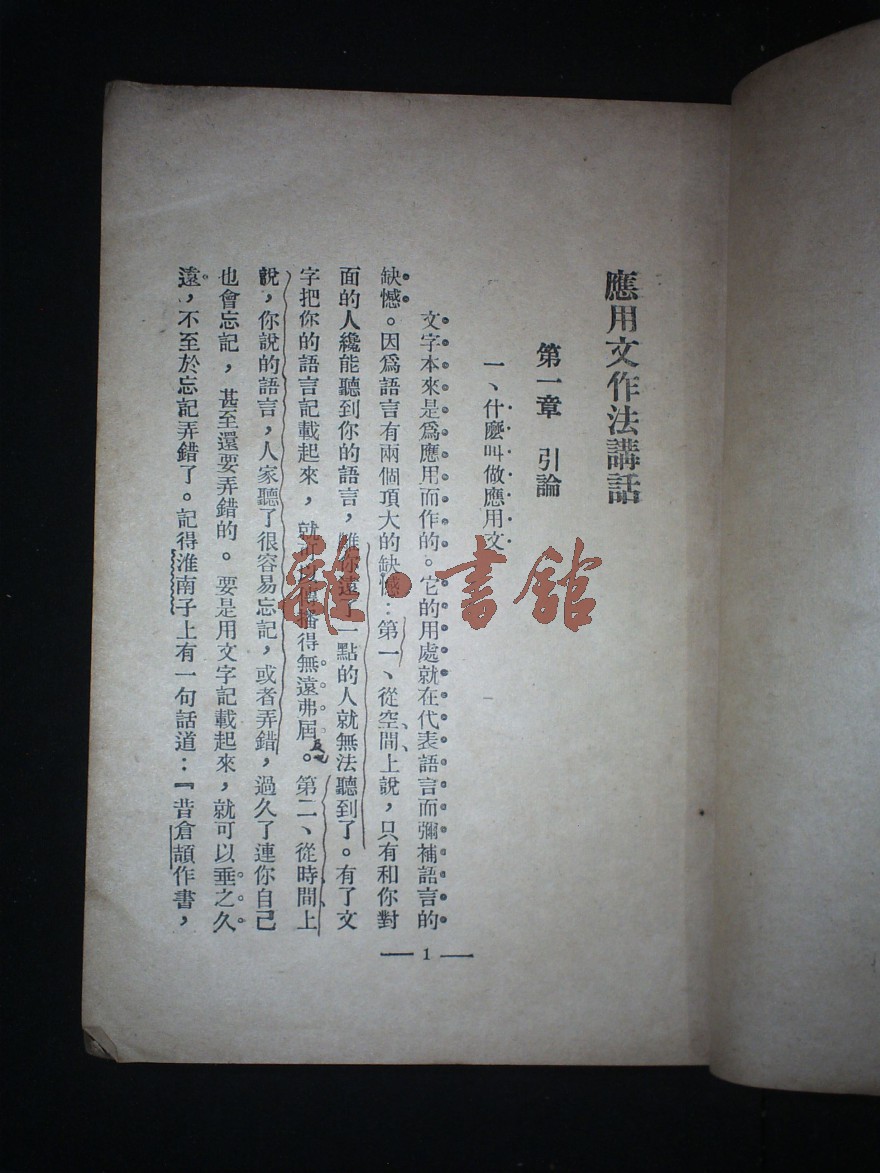 應用文作法講話
第一章 引論
一、什麼叫做應用文
文字本來是爲應用而作的。它的用處就在代表語言而彌補語言的
缺憾。因爲語言有兩個頂大的缺憾：第一、從空間上說，只有和你對
面的人纔能聽到你的語言，離你遠了一點的人就無法聽到了。有了文
字把你的語言記載起來，就可以傳播得無遠弗屆。第二、從時間上
說，你說的語言，人家聽了很容易忘記，或者弄錯，過久了連你自己
也會忘記，甚至還要弄錯的。要是用文字記載起來，就可以垂之久
遠，不至於忘記弄錯了。記得淮南子上有一句話道：『昔倉頡作書，
— 1 —
雜·書館